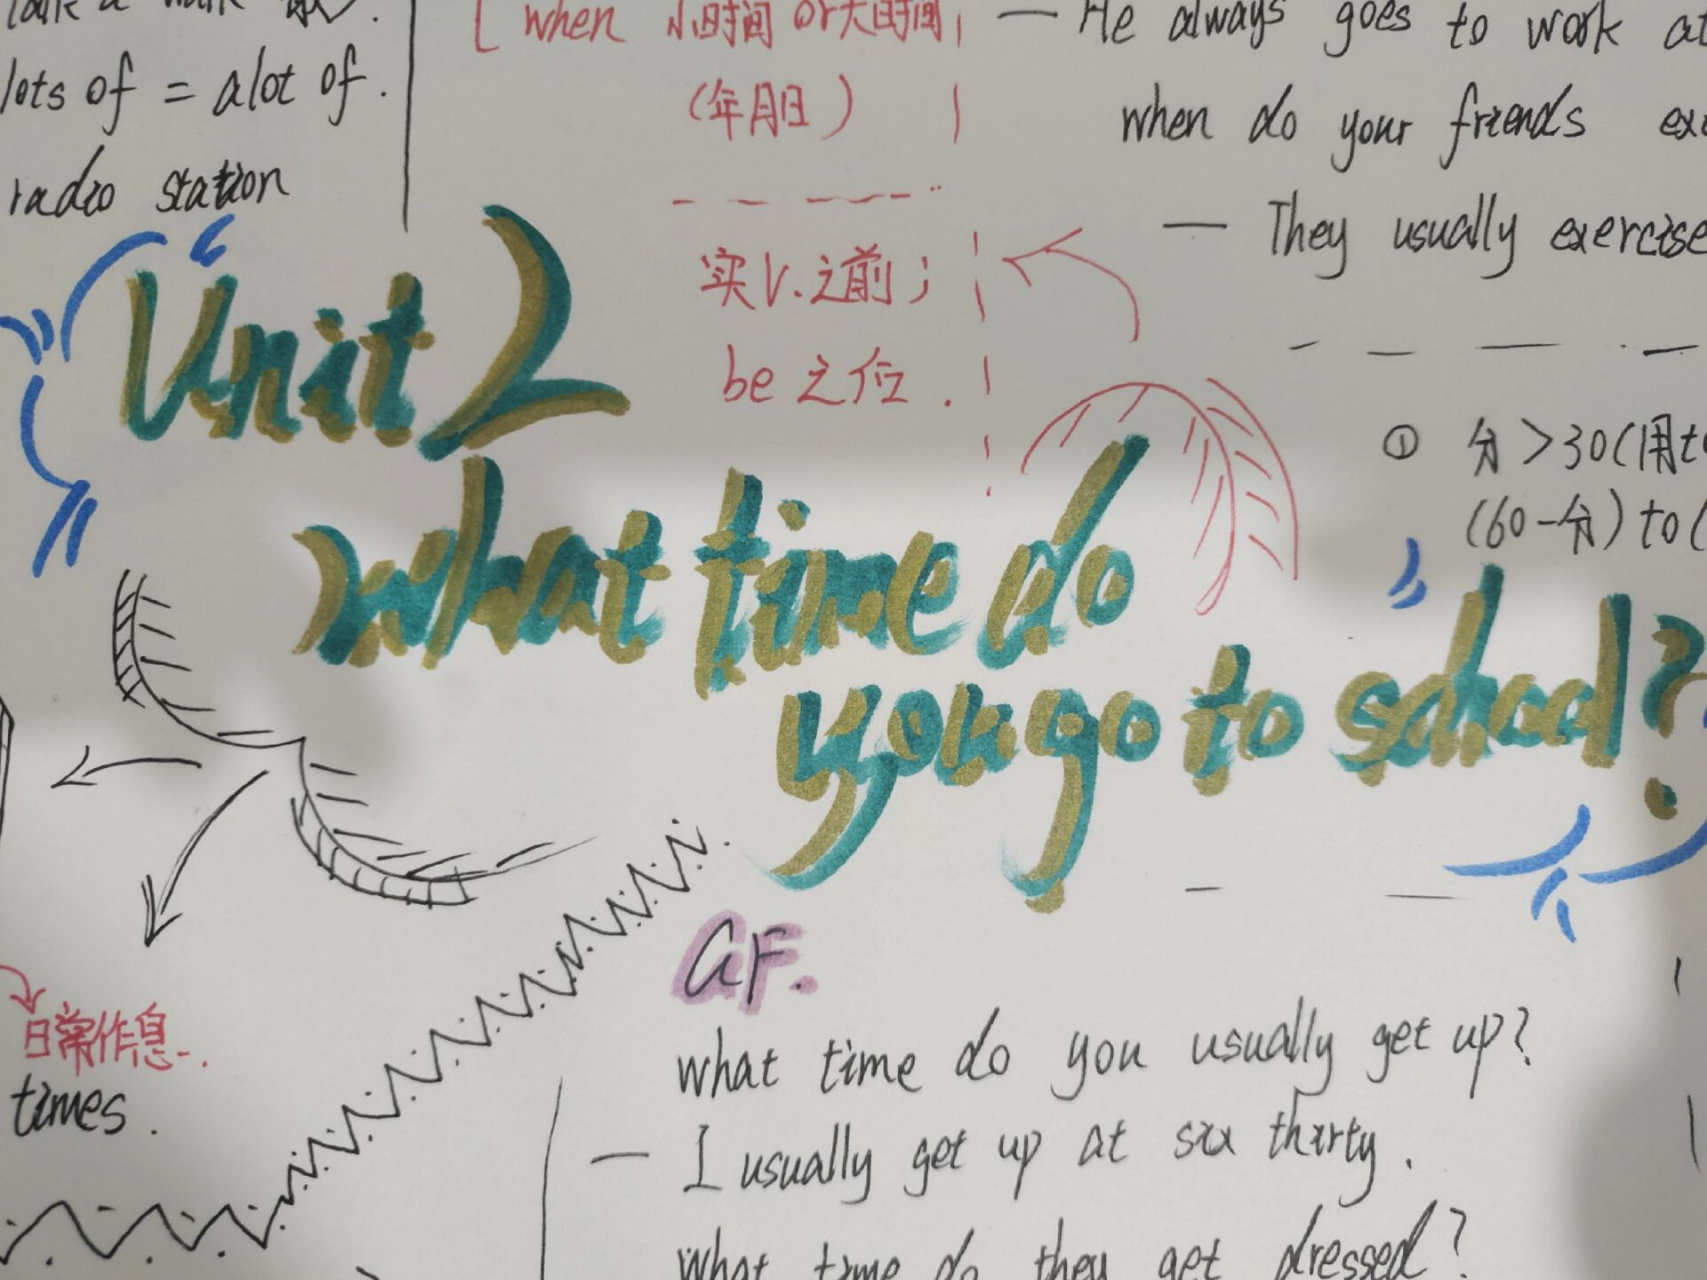 take a walk
lots of = alot of.
radio station
[ when 小时间 or大时间,
(年月日)
— He always goes to work at
when do your friends
— They usually exercise
实v.之前;
be 之后.
Unit 2
What time do
you go to school?
① 分>30(用t
(60-分) to (
日常作息.
times.
GF.
what time do you usually get up?
— I usually get up at six thirty.
what time do they get dressed?